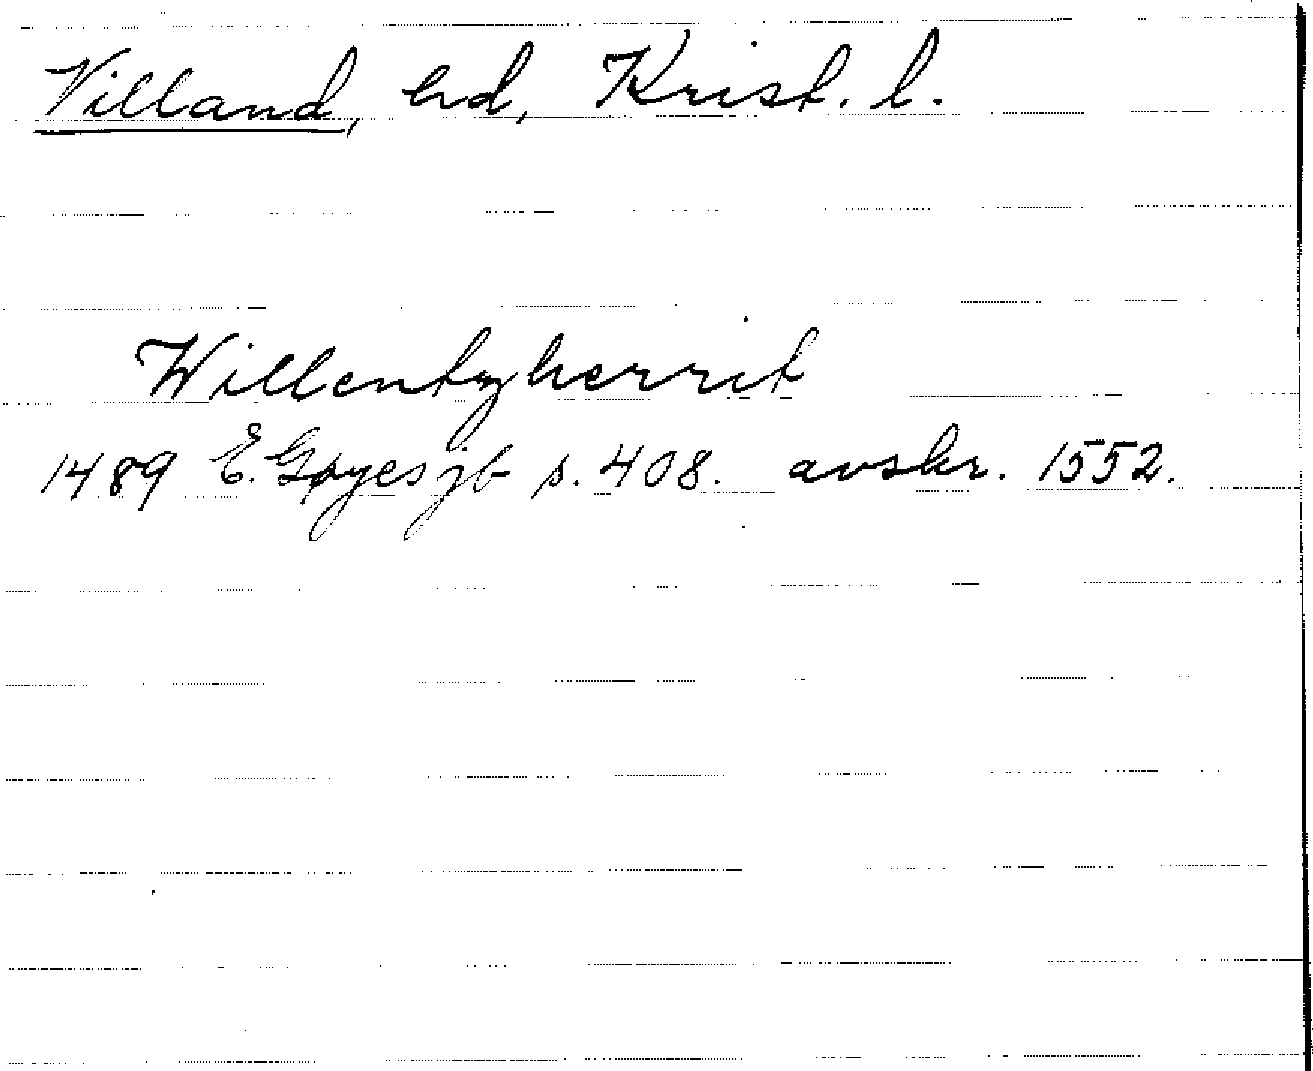 Villand, hd, Krist. l.
Willentzherrit
1489 E. Gøyes jb s. 408. avskr. 1552.